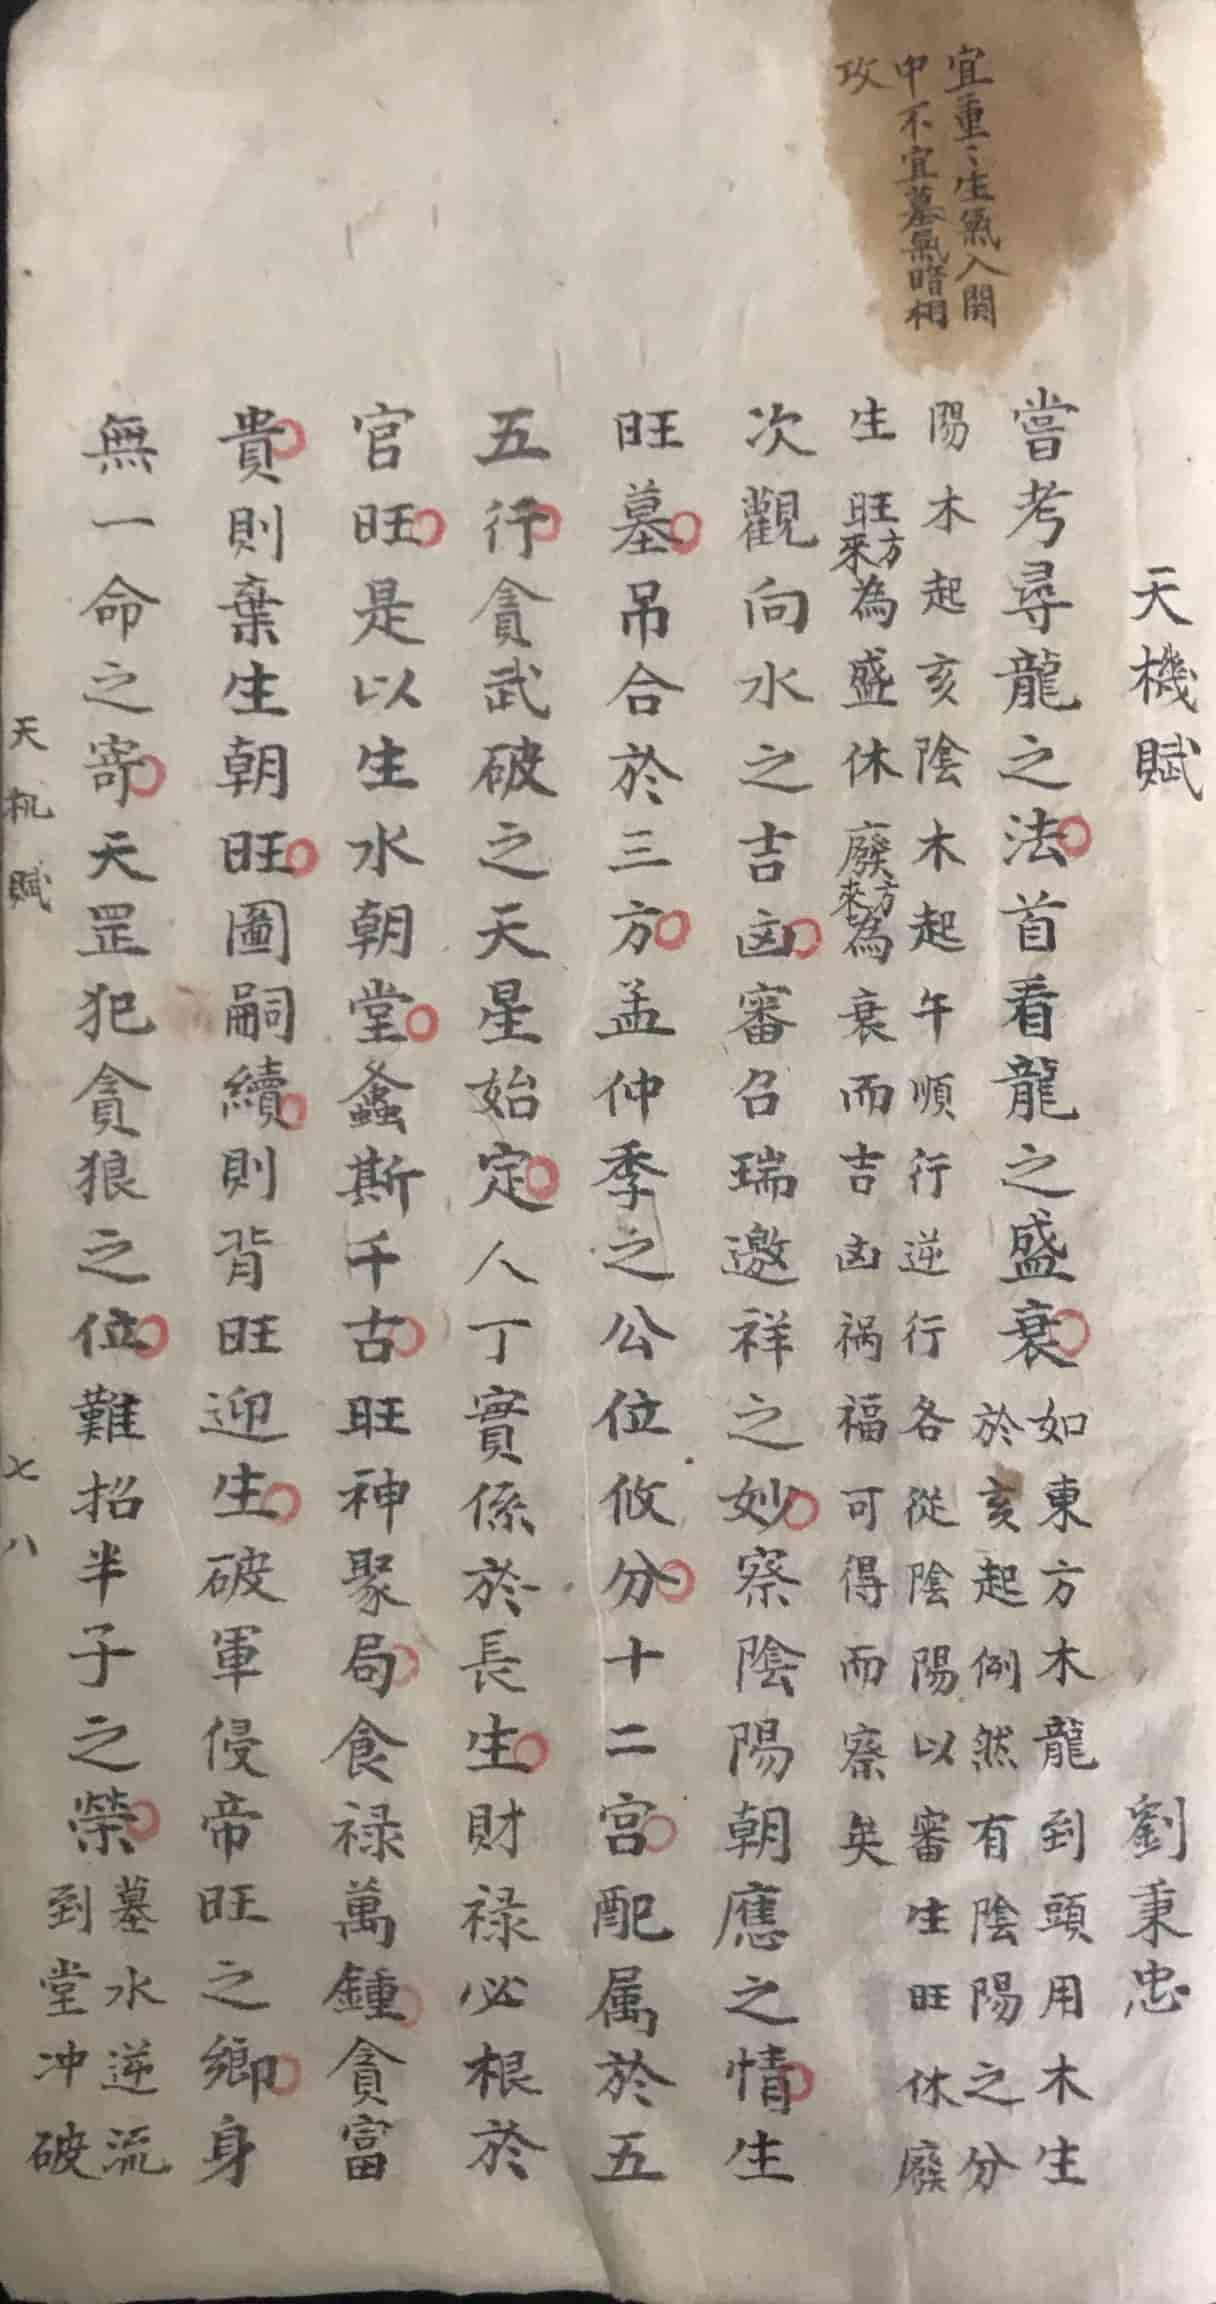 天機賦　劉秉忠
宜重〻生氣入関
中不宜墓氣暗相
攻
嘗考尋龍之法首看龍之盛衰
如東方木龍到頭用木生
於亥起例然有陰陽之分
陽木起亥陰木起午順行逆行各從陰陽以審生旺休廢
生旺方來為盛休廢方來為衰而吉凶祸福可得而察矣
次觀向水之吉凶審召瑞邀祥之妙察陰陽朝應之情生
旺墓吊合於三方孟仲季之公位攸分十二宮配属於五
五行貪武破之天星始定人丁實係於長生財禄必根於
官旺是以生水朝堂螽斯千古旺神聚局食禄萬鍾貪富
貴則棄生朝旺圖嗣續則背旺迎生破軍侵帝旺之鄉身
無一命之寄天罡犯貪狼之位難招半子之榮
墓水逆流
到堂冲破
天机賦
七八